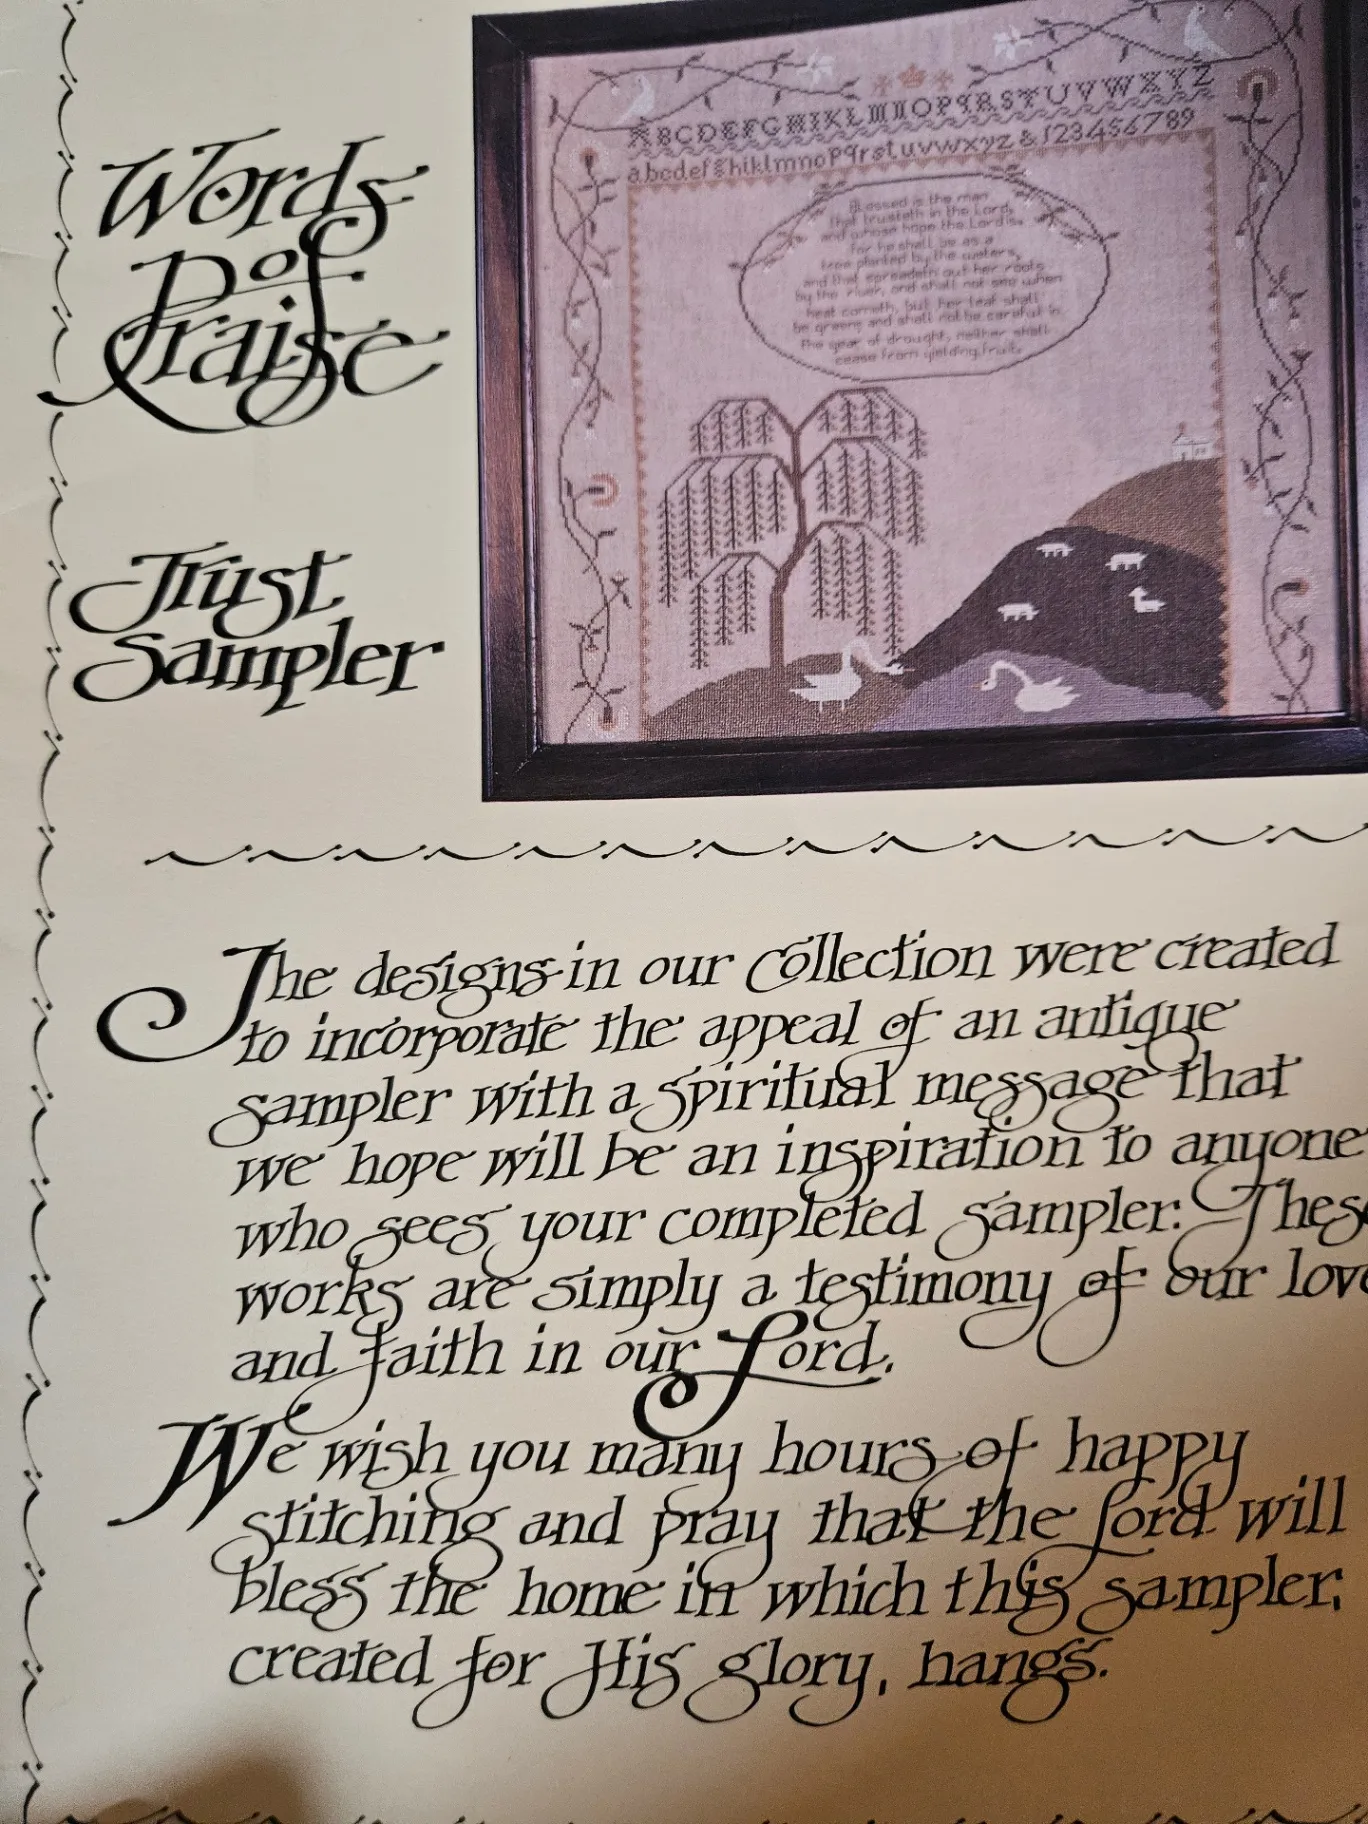 Words
of
Praise
Trust
Sampler
ABCDEFGHIKLMNOPQRSTUVWXYZ
abcdefghiklmnopqrstuvwxyz & 123456789
Blessed is the man
that trusteth in the Lord,
and whose hope the Lord is.
For he shall be as a
tree planted by the waters,
and that spreadeth out her roots
by the river, and shall not see when
heat cometh, but her leaf shall
be green; and shall not be careful in
the year of drought, neither shall
cease from yielding fruit.
The designs in our Collection were created
to incorporate the appeal of an antique
sampler with a spiritual message that
we hope will be an inspiration to anyone
who sees your completed sampler. These
works are simply a testimony of our love
and faith in our Lord.
We wish you many hours of happy
stitching and pray that the Lord will
bless the home in which this sampler,
created for His glory, hangs.